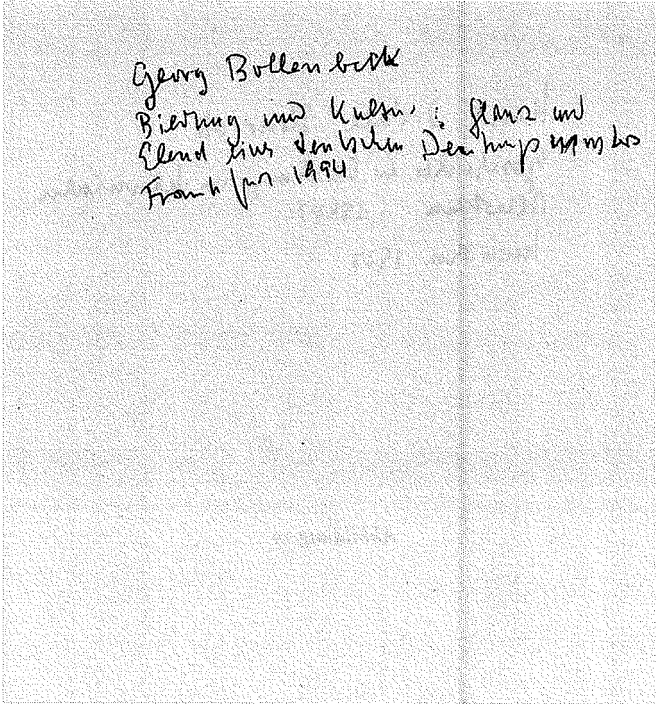 Georg Bollenbeck
Bildung und Kultur : Glanz und
Elend eines deutschen Deutungsmusters
Frankfurt 1994